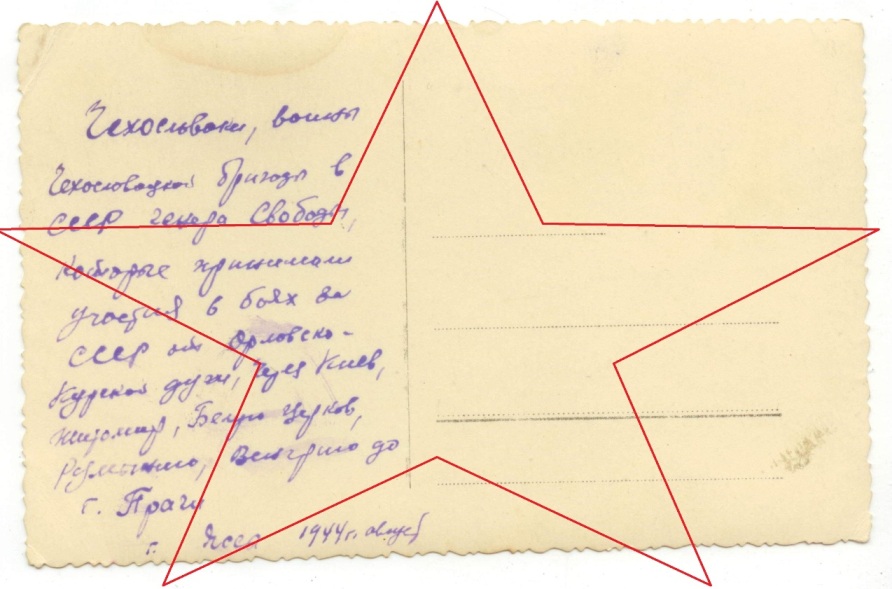 Чехословаки, воины
Чехословацкой бригады в
СССР генера Свободы,
которые принимали
участия в боях за
СССР от Орловско-
Курской дуги, через Киев,
Житомир, Белую Церковь,
Румынию, Венгрию до
г. Праги
г. 1944 г. август